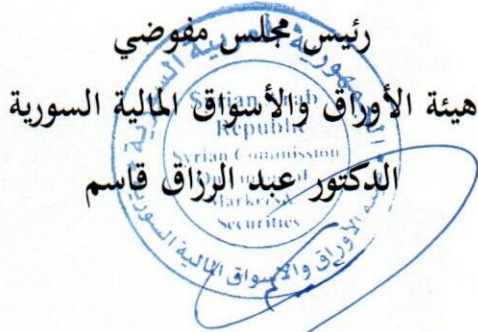 رئيس مجلس مفوضي
هيئة الأوراق والأسواق المالية السورية
الدكتور عبد الرزاق قاسم
الجمهورية العربية السورية
Syrian Arab
Republic
Syrian Commission
Financial
Markets &
Securities
هيئة الأوراق والأسواق المالية السورية